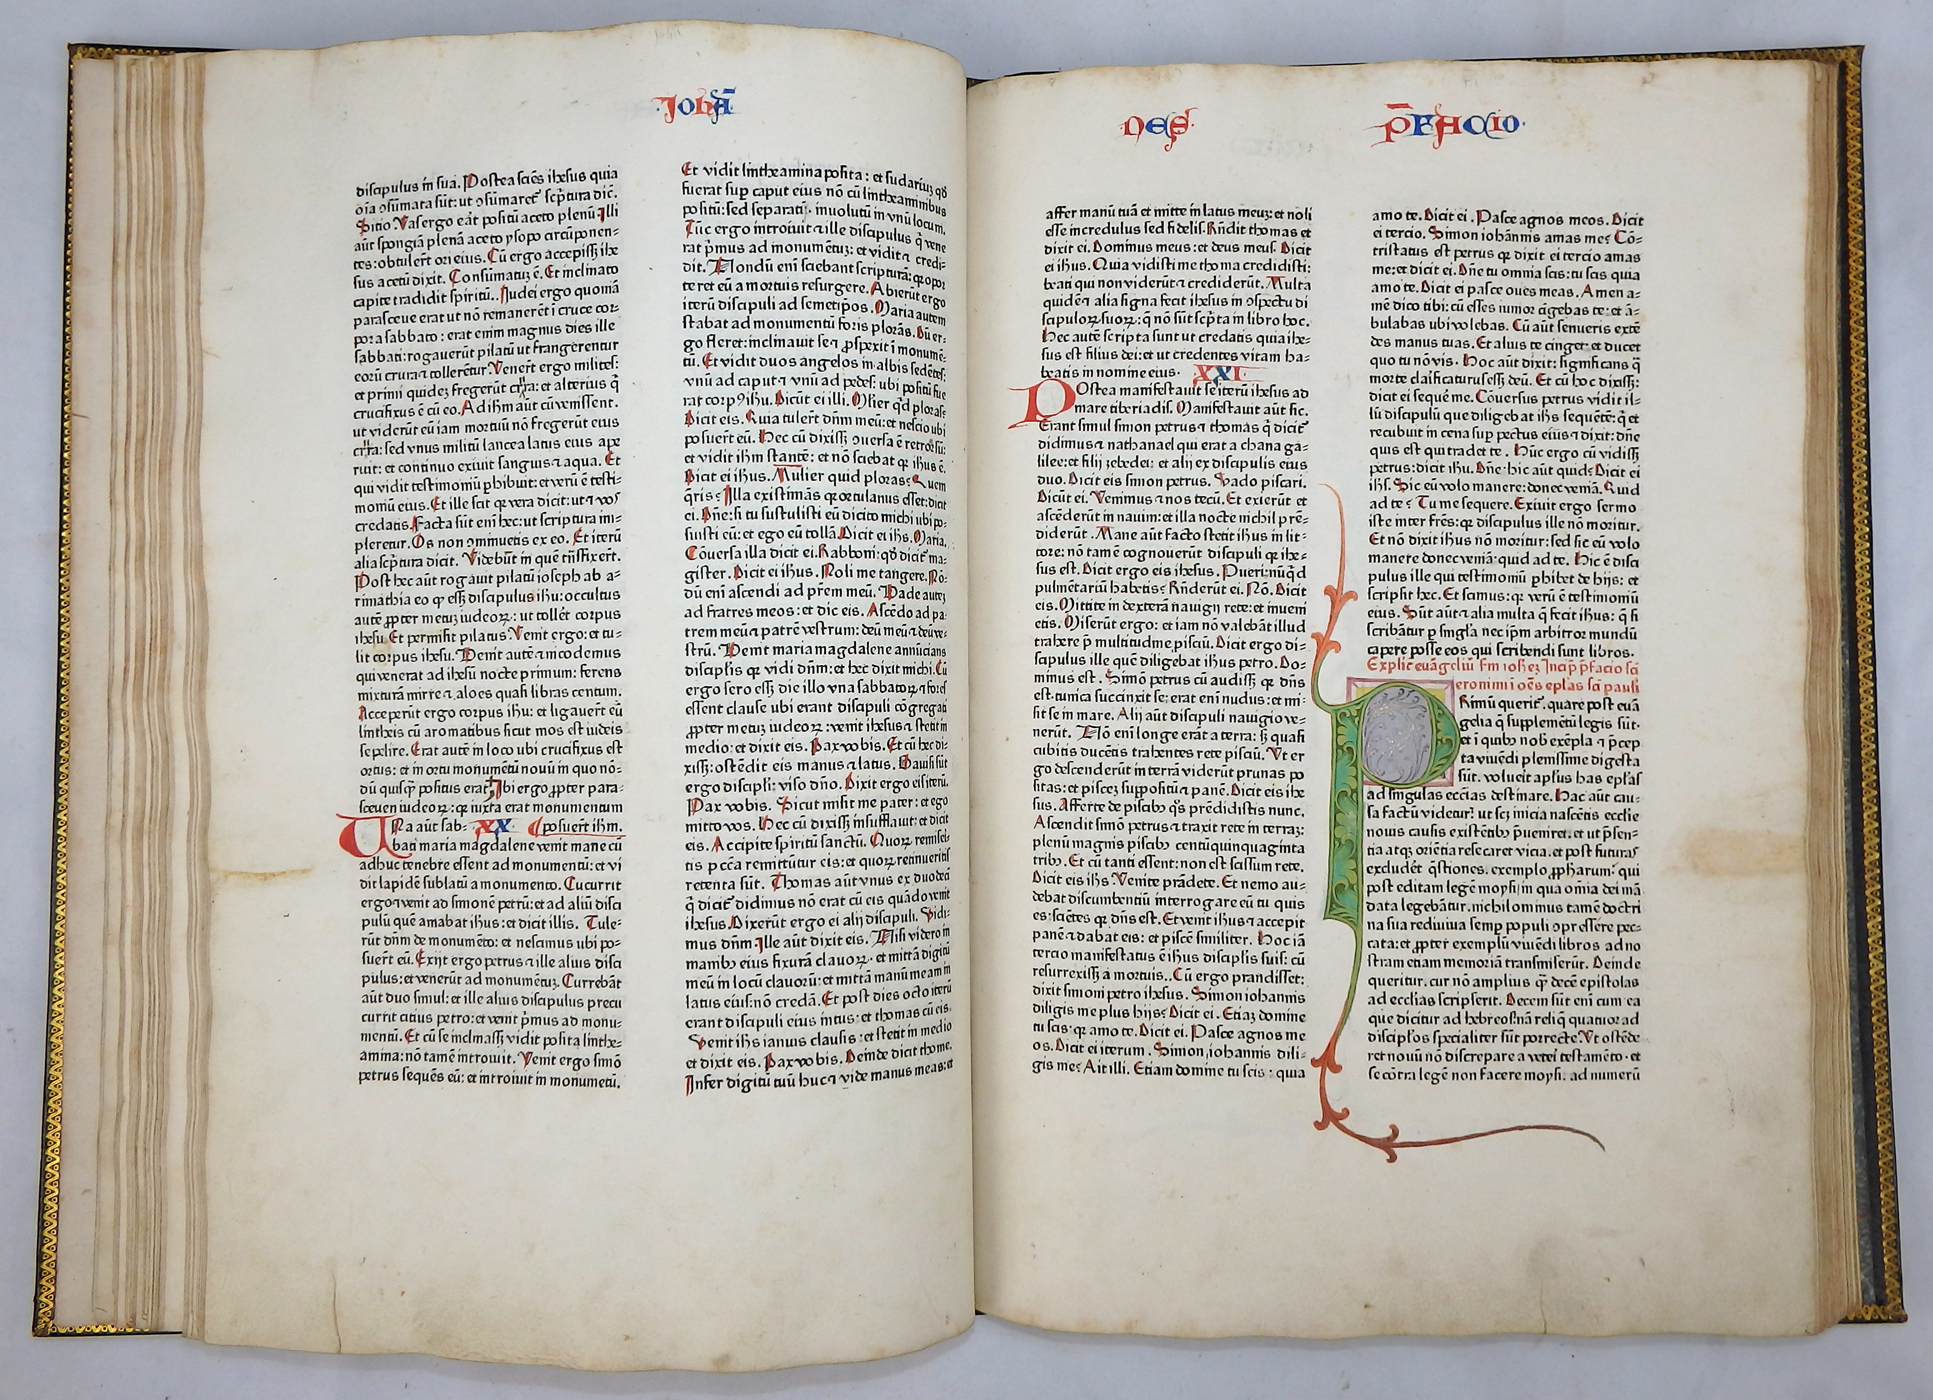 Johā
discipulus in sua. Postea sciēs ihesus quia
oīa ↄsūmata sūt: ut ↄsūmaret᷑ scp̄tura dic̄.
Sitio. Vas ergo eāt positū aceto plenū. Illi
aūt spongiā plenā aceto ysopo circūponen-
tes: obtulert̄ ori eius. Cū ergo accepissꝫ ihe
sus acetū dixit. Consūmatuꝫ ē. Et inclinato
capite tradidit spiritū. Iudei ergo quoniā
parasceue erat ut nō remanerēt ī cruce cor-
pora sabbato: erat enim magnus dies ille
sabbati: rogauerūt pilatū ut frangerentur
eorū crura ⁊ tollerētur. Venert̄ ergo milites:
et primi quideꝫ fregerūt cr̄ra: et alterius q̄
crucifixus ē cū eo. Ad ihm̄ aūt cū venissent.
ut viderūt eū iam mortuū nō fregerūt eius
cr̄ra: sed vnus militū lancea latus eius ape
ruit: et continuo exiuit sanguis ⁊ aqua. Et
qui vidit testimoniū ꝑhibuit: et verū ē testi-
moniū eius. Et ille scit qꝫ vera dicit: ut ⁊ vos
credatis. Facta sūt enī hec: ut scriptura im-
pleretur. Os non ↄminuetis ex eo. Et iterū
alia scp̄tura dicit. Videbūt in quē trāsfixert̄.
Post hec aūt rogauit pilatū ioseph ab a-
rimathia eo qꝫ essꝫ discipulus ihu: occultus
autē ꝓpter metuꝫ iudeoꝝ: ut tollēt corpus
ihesu. Et permisit pilatus. Venit ergo: et tu-
lit corpus ihesu. Venit autē ⁊ nicodemus
qui venerat ad ihesū nocte primum: ferens
mixturā mirre ⁊ aloes quasi libras centum.
Acceperūt ergo corpus ihu: et ligauert̄ eū
lintheis cū aromatibus sicut mos est iudeis
sepelire. Erat autē in loco ubi crucifixus est
ortus: et in orto monumētū nouū in quo nō-
dū quisqꝫ positus erat. Ibi ergo ꝓpter para-
sceuen iudeoꝝ: qꝫ iuxta erat monumentum
VNa aūt sab- XX posuert̄ ihm.
bati maria magdalene venit mane cū
adhuc tenebre essent ad monumentū: et vi
dit lapidē sublatū a monumento. Cucurrit
ergo ⁊ venit ad simonē petrū: et ad aliū disci
pulū quē amabat ihus: et dicit illis. Tule-
rūt dn̄m de monumēto: et nescimus ubi po-
suert̄ eū. Exijt ergo petrus ⁊ ille alius disci
pulus: et venerūt ad monumētuꝫ. Currebāt
aūt duo simul: et ille alius discipulus precu
currit citius petro: et venit p̄mus ad monu-
mentū. Et cū se inclinassꝫ vidit posita linthe-
amina: nō tamē introiuit. Venit ergo simō
petrus sequēs eū: et introiuit in monumētū.
Et vidit lintheamina posita: et sudariuꝫ qđ
fuerat suꝑ caput eius nō cū lintheaminibus
positū: sed separati3 inuolutū in vnū locum.
Tūc ergo introiuit ⁊ ille discipulus q̄ vene
rat p̄mus ad monumētuꝫ: et vidit ⁊ credi-
dit. Nondū enī sciebant scripturā: qꝫ opor
teret eū a mortuis resurgere. Abierūt ergo
iterū discipuli ad semetip̄os. Maria autem
stabat ad monumentū foris plorās. Dū er-
go fleret: inclinauit se ⁊ ꝓspexit ī monumē-
tū. Et vidit duos angelos in albis sedētes:
vnū ad caput ⁊ vnū ad pedes: ubi positū fue
rat corpꝰ ihu. Dicūt ei illi. Mlier qđ ploras?
Dicit eis. Quia tulert̄ dn̄m meū: et nescio ubi
posuert̄ eū. Hec cū dixissꝫ ↄuersa ē retrorsū:
et vidit ihm stantē: et nō sciebat qꝫ ihus ē.
Dicit ei ihus. Mulier quid ploras? Quem
q̄ris? Illa existimās qꝫ ortulanus esset: dicit
ei. Dn̄e: si tu sustulisti eū dicito michi ubi po-
suisti eū: et ego eū tollā. Dicit ei ihs. Maria.
Cōuersa illa dicit ei. Rabboni: qđ dicit᷑ ma-
gister. Dicit ei ihus. Noli me tangere. Nō-
dū enī ascendi ad prēm meū. Vade auteꝫ
ad fratres meos: et dic eis. Ascēdo ad pa-
trem meū ⁊ patrē vestrum: deū meū ⁊ deū ve-
strū. Venit maria magdalene annūcians
discipl̄is qꝫ vidi dn̄m: et hec dixit michi. Cū
ergo sero essꝫ die illo vna sabbatoꝝ ⁊ fores
essent clause ubi erant discipuli cōgregati
ꝓpter metuꝫ iudeoꝝ: venit ihesus ⁊ stetit in
medio: et dixit eis. Pax vobis. Et cū hec di-
xissꝫ: ostēdit eis manus ⁊ latus. Gauisi sūt
ergo discipl̄i: viso dn̄o. Dixit ergo eis iterū.
Pax vobis. Sicut misit me pater: et ego
mitto vos. Hec cū dixissꝫ insufflauit: et dicit
eis. Accipite spiritū sanctū. Quoꝝ remiseri-
tis pccā remittūtur eis: et quoꝝ retinueritis
retenta sūt. Thomas aūt vnus ex duodecī
q̄ dicit᷑ didimus nō erat cū eis quādo venit
ihesus. Dixerūt ergo ei alij discipuli. Vidi-
mus dn̄m. Ille aūt dixit eis. Nisi videro in
manibꝫ eius fixurā clauoꝝ. et mittā digitū
meū in locū clauorū: et mittā manū meam in
latus eius: nō credā. Et post dies octo iterū
erant discipuli eius intus: et thomas cū eis.
Venit ihs ianuis clausis: et stetit in medio
et dixit eis. Pax vobis. Deinde dicit thome.
Infer digitū tuū huc ⁊ vide manus meas: et
nes
p̄facio
affer manū tuā et mitte in latus meuꝫ: et noli
esse incredulus sed fidelis. Rn̄dit thomas et
dixit ei. Dominus meus: et deus meus. Dicit
ei ihus. Quia vidisti me thoma credidisti:
beati qui non viderūt ⁊ crediderūt. Multa
quidē ⁊ alia signa fecit ihesus in ↄspectu di
scipuloꝝ suoꝝ: q̄ nō sūt scp̄ta in libro hoc.
Hec autē scripta sunt ut credatis quia ihe-
sus est filius dei: et ut credentes vitam ha-
beatis in nomine eius. XXI
POstea manifestauit se iterū ihesus ad
mare tiberiadis. Manifestauit aūt sic.
Erant simul simon petrus ⁊ thomas q̄ dicit᷑
didimus ⁊ nathanael qui erat a chana ga-
lilee: et filij zebedei: et alij ex discipulis eius
duo. Dicit eis simon petrus. Vado piscari.
Dicūt ei. Venimus ⁊ nos tecū. Et exierūt et
ascēderūt in nauim: et illa nocte nichil prē-
diderūt. Mane aūt facto stetit ihus in lit-
tore: nō tamē cognouerūt discipuli qꝫ ihe-
sus est. Dicit ergo eis ihesus. Pueri: nūqđ
pulmētariū habetis? Rn̄derūt ei. Nō. Dicit
eis. Mittite in dexterā nauigij rete: et inueni
etis. Miserūt ergo: et iam nō valebāt illud
trahere ꝑ multitudine pisciū. Dicit ergo di-
scipulus ille quē diligebat ihus petro. Do-
minus est. Simō petrus cū audissꝫ qꝫ dn̄s
est: tunica succinxit se: erat enī nudus: et mi-
sit se in mare. Alij aūt discipuli nauigio ve-
nerūt. Nō enī longe erāt a terra: sꝫ quasi
cubitis ducētis trahentes rete pisciū. Vt er
go descenderūt in terrā viderūt prunas po
sitas: et pisceꝫ suppositū ⁊ panē. Dicit eis ihe
sus. Afferte de piscibꝫ q̄s prēdidistis nunc.
Ascendit simō petrus ⁊ traxit rete in terraꝫ:
plenū magnis piscibꝫ centū quinquaginta
tribꝫ. Et cū tanti essent: non est scissum rete.
Dicit eis ihs. Venite prādete. Et nemo au-
debat discumbentiū interrogare eū tu quis
es: sciētes qꝫ dn̄s est. Et venit ihus ⁊ accepit
panē ⁊ dabat eis: et piscē similiter. Hoc iā
tercio manifestatus ē ihus discipulis suis: cū
resurrexissꝫ a mortuis. Cū ergo prandisset:
dixit simoni petro ihesus. Simon iohannis
diligis me plus hijs? Dicit ei. Etiaꝫ domine
tu scis qꝫ amo te. Dicit ei. Pasce agnos me
os. Dicit ei iterum. Simon iohannis dili-
gis me? Ait illi. Etiam domine tu scis: quia
amo te. Dicit ei. Pasce agnos meos. Dicit
ei tercio. Simon iohānnis amas me? Cō-
tristatus est petrus qꝫ dixit ei tercio amas
me: et dicit ei. Dn̄e tu omnia scis: tu scis quia
amo te. Dicit ei pasce oues meas. Amen a-
mē dico tibi: cū esses iunior cīgebas te: et ā-
bulabas ubi volebas. Cū aūt senueris extē
des manus tuas. Et alius te cinget: et ducet
quo tu nō vis. Hoc aūt dixit: significans q̄
morte clarificaturus essꝫ deū. Et cū hoc dixissꝫ:
dicit ei sequere me. Cōuersus petrus vidit il-
lū discipulū quē diligebat ihs sequētē: q̄ et
recubuit in cena suꝑ pectus eius ⁊ dixit: dn̄e
quis est qui tradet te. Hūc ergo cū vidissꝫ
petrus: dicit ihu. Dn̄e: hic aūt quid? Dicit ei
ihs. Sic eū volo manere: donec veniā. Quid
ad te? Tu me sequere. Exiuit ergo sermo
iste inter frēs: qꝫ discipulus ille nō moritur.
Et nō dixit ihus nō moritur: sed sic eū volo
manere donec veniā: quid ad te. Hic ē disci
pulus ille qui testimoniū ꝑhibet de hijs: et
scripsit hec. Et scimus: qꝫ verū ē testimoniū
eius. Sūt aūt ⁊ alia multa q̄ fecit ihus: q̄ si
scribātur ꝑ singl̄a nec ip̄m arbitror mundū
capere posse eos qui scribendi sunt libros.
Explic̄ euāgeliū ſm ioheꝫ Incip̄ p̄facio sc̄i
ieronimi ī oēs ep̄las sc̄i pauli
PRimū querit᷑. quare post euā
gelia q̄ supplemētū legis sūt.
et ī quibꝫ nob̄ exēpla ⁊ p̄cep
ta viuēdi plenissime digesta
sūt. voluerit apl̄us has ep̄las
ad singulas ecc̄ias destinare. Hac aūt cau-
sa factū videtur: ut scꝫ inicia nascētis ecclie
nouis causis existētibꝫ p̄ueniret. et ut p̄sen-
tia atqꝫ oriētia resecaret vicia. et post futuras
excludēt q̄stiones. exemplo ꝓpharum: qui
post editam legē moysi: in qua om̄ia dei mā
data legebātur. nichilominus tamē doctri
na sua rediuiua semꝑ populi oppressere pec-
cata: et ꝓpter exemplū viuēdi libros ad no
stram etiam memoriā transmiserūt. Deinde
queritur. cur nō amplius q̄ decē epistolas
ad ecclias scripserit. Decem sūt enī cum ea
que dicitur ad hebreos: nā reliq̄ quatuor ad
discipl̄os specialiter sūt porrecte. Vt ostēde
ret nouū nō discrepare a veteri testamēto. et
se cōtra legē non facere moysi. ad numerū